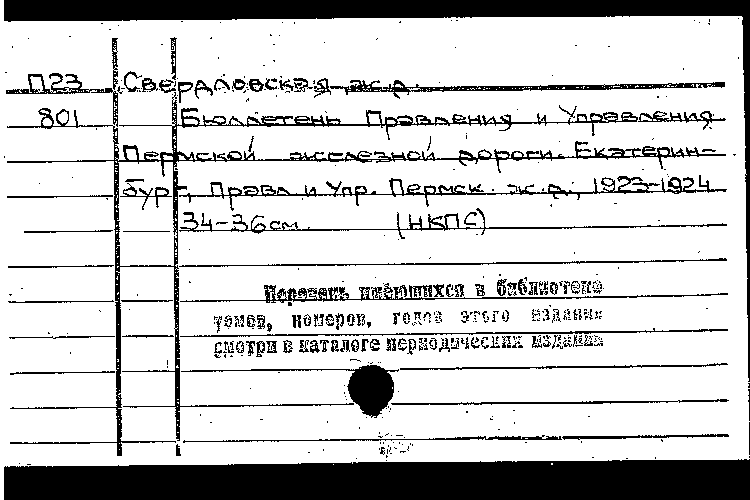 П23 Свердловская ж.д.
801 Бюллетень Правления и Управления
Пермской железной дороги. Екатерин-
бург, Правл и Упр. Пермск. ж.д., 1923-1924
34-36см. (НКПС)
Перечень имеющихся в библиотеке
томов, номеров, годов этого издания
смотри в каталоге периодических изданий